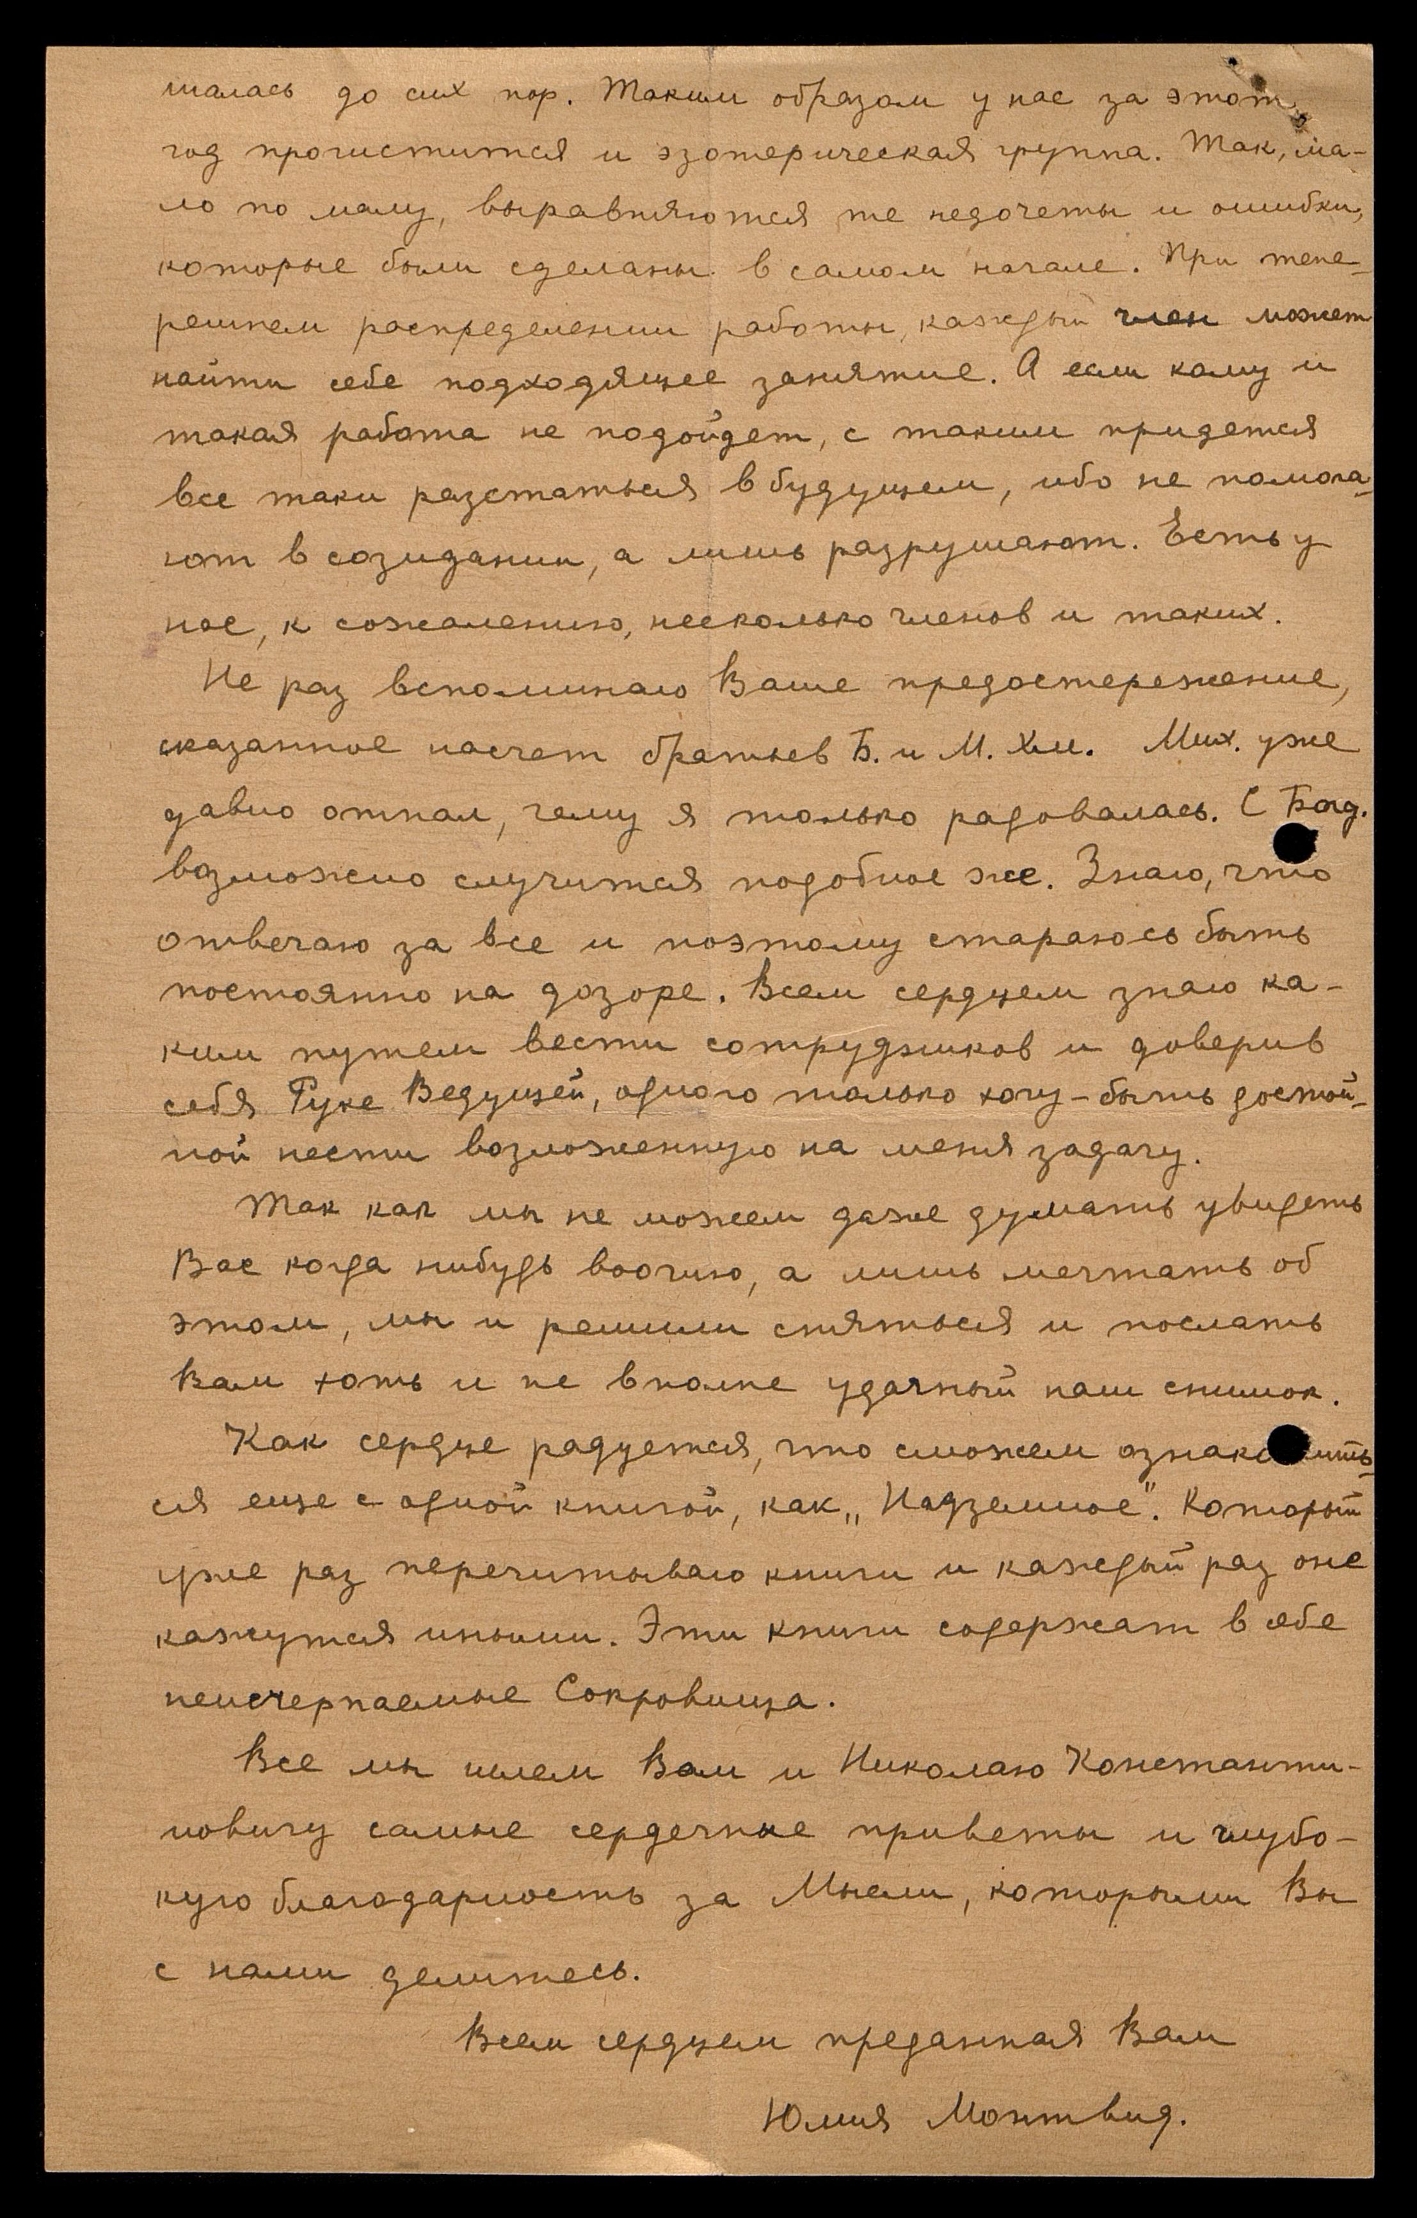 шалась до сих пор. Таким образом у нас за этот
год прочистится и эзотерическая группа. Так, ма-
ло по малу, выравняются те недочеты и ошибки,
которые были сделаны в самом начале. При тепе-
решнем распределении работы, каждый член может
найти себе подходящее занятие. А если кому и
такая работа не подойдет, с такими придется
все таки разстаться в будущем, ибо не помога-
ют в созидании, а лишь разрушают. Есть у
нас, к сожалению, несколько членов и таких.
Не раз вспоминаю Ваше предостережение,
сказанное насчет братьев Б. и М. Хм. Мих. уже
давно отпал, чему я только радовалась. С Богд.
возможно случится подобное же. Знаю, что
отвечаю за все и поэтому стараюсь быть
постоянно на дозоре. Всем сердцем знаю ка-
ким путем вести сотрудников и доверив
себя Руке Ведущей, одного только хочу - быть достой-
ной нести возложенную на меня задачу.
Так как мы не можем даже думать увидеть
Вас когда нибудь воочию, а лишь мечтать об
этом, мы и решили сняться и послать
Вам хоть и не вполне удачный наш снимок.
Как сердце радуется, что сможем ознакомить-
ся еще с одной книгой, как „Надземное". Который
уже раз перечитываю книги и каждый раз оне
кажутся иными. Эти книги содержат в себе
неисчерпаемые Сокровища.
Все мы шлем Вам и Николаю Константи-
новичу самые сердечные приветы и глубо-
кую благодарность за Мысли, которыми Вы
с нами делитесь.
Всем сердцем преданная Вам
Юлия Монтвид.